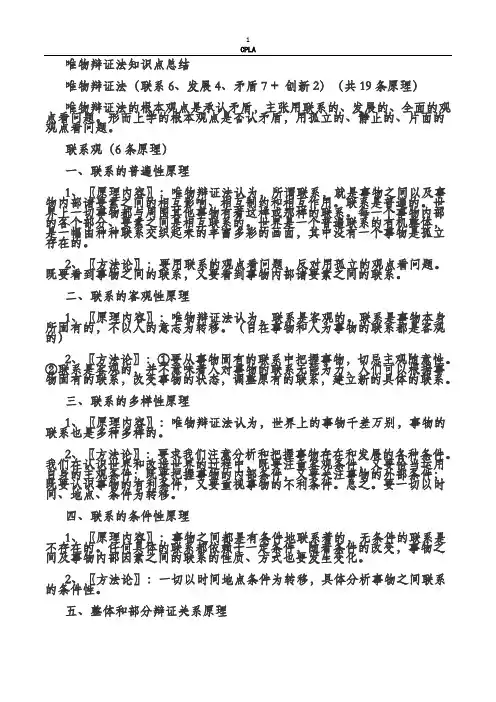 1
CPLA
唯物辩证法知识点总结
唯物辩证法（联系6、发展4、矛盾7+ 创新2）（共19条原理）
唯物辩证法的根本观点是承认矛盾，主张用联系的、发展的、全面的观
点看问题。形而上学的根本观点是否认矛盾，用孤立的、静止的、片面的
观点看问题。
联系观（6条原理）
一、联系的普遍性原理
1、〖原理内容〗：唯物辩证法认为，所谓联系，就是事物之间以及事
物内部诸要素之间的相互影响、相互制约和相互作用。联系是普遍的。世
界上一切事物都与周围其他事物有着这样或那样的联系。每一个事物内部
的各个部分、要素之间是相互联系的。世界是一个普遍联系的有机整体，
是一幅由种种联系交织起来的丰富多彩的画面，其中没有一个事物是孤立
存在的。
2、〖方法论〗：要用联系的观点看问题，反对用孤立的观点看问题。
既要看到事物之间的联系，又要看到事物内部诸要素之间的联系。
二、联系的客观性原理
1、〖原理内容〗：唯物辩证法认为，联系是客观的，联系是事物本身
所固有的，不以人的意志为转移。（自在事物和人为事物的联系都是客观
的）
2、〖方法论〗：①要从事物固有的联系中把握事物，切忌主观随意性。
②联系是客观的，并不意味着人对事物的联系无能为力，人们可以根据事
物固有的联系，改变事物的状态，调整原有的联系，建立新的具体的联系。
三、联系的多样性原理
1、〖原理内容〗：唯物辩证法认为，世界上的事物千差万别，事物的
联系也是多种多样的。
2、〖方法论〗：要求我们注意分析和把握事物存在和发展的各种条件。
我们在认识世界和改造世界的过程中，既要注重客观条件，又要恰当运用
自身的主观条件；既要把握事物的内部条件，又要关注事物的外部条件；
既要认识事物的有利条件，又要重视事物的不利条件。总之。要一切以时
间、地点、条件为转移。
四、联系的条件性原理
1、〖原理内容〗：事物之间都是有条件地联系着的，无条件的联系是
不存在的。任何具体的联系都依赖于一定条件，随着条件的改变，事物之
间及事物内部因素之间的联系的性质、方式也要发生变化。
2、〖方法论〗：一切以时间地点条件为转移，具体分析事物之间联系
的条件性。
五、整体和部分辩证关系原理